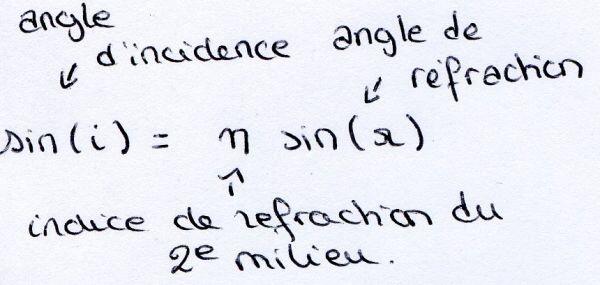 angle
d'incidence
angle de
réfraction
sin(i) = n sin(r)
indice de refraction du
2e milieu.